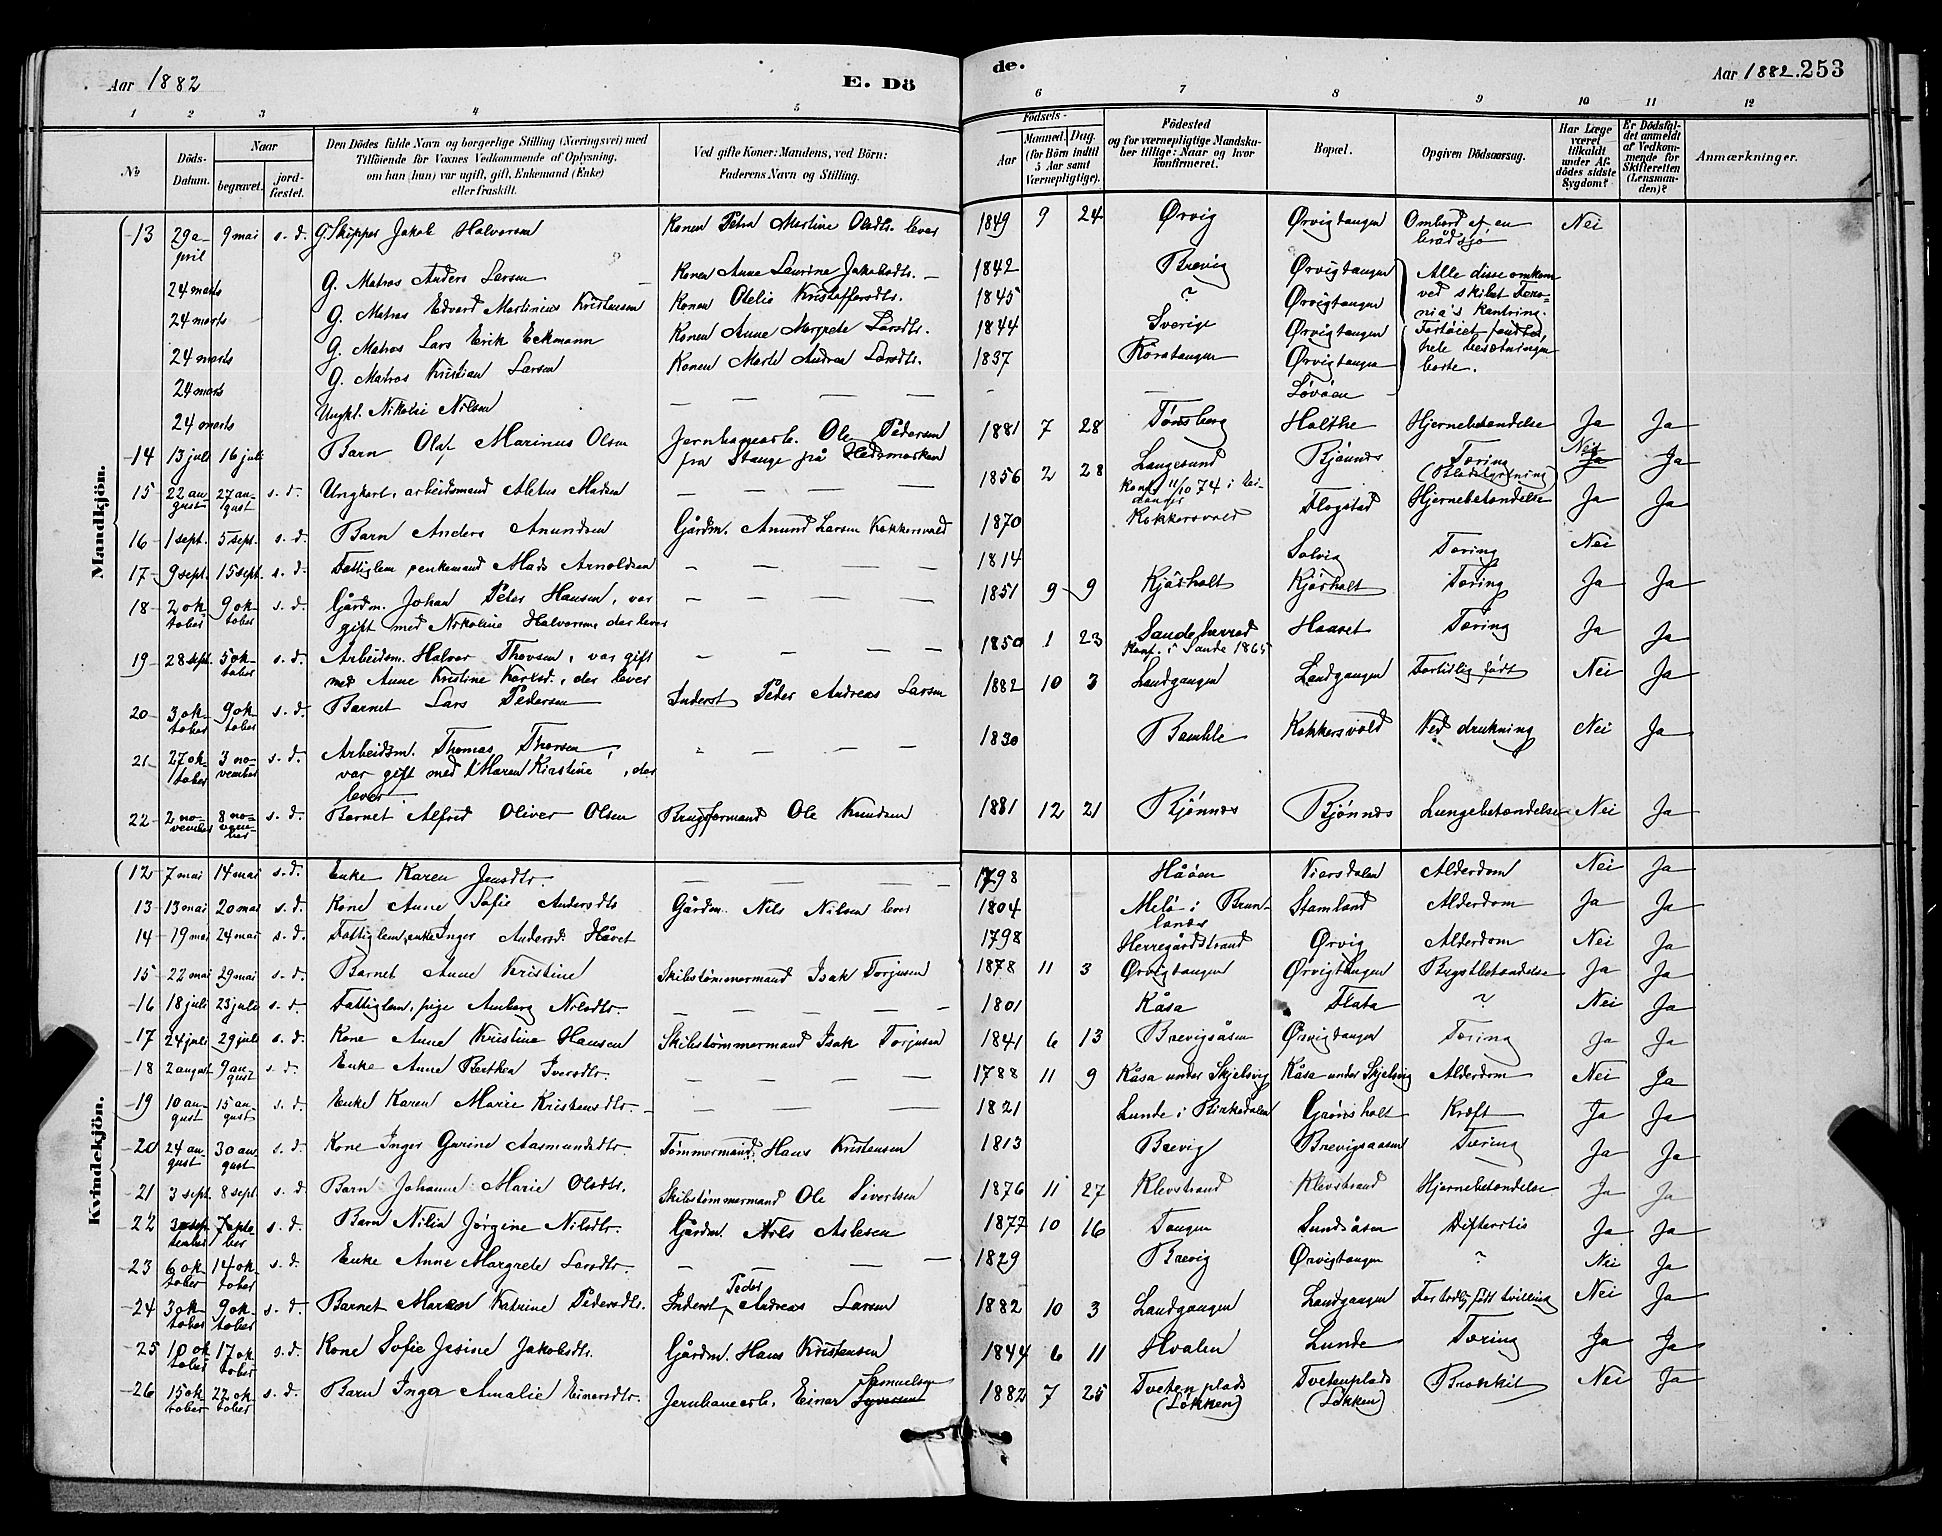 Aar 1882
E. Dö
de.
Aar 1882. 253
1 2 3 4 5 6 7 8 9 10 11 12
No
Döds-Datum.
Naar
begravet.
jordfæstet.
Den Dödes fulde Navn og borgerlige Stilling (Næringsvei) med
Tilföiende for Voxnes Vedkommende af Oplysning,
om han (hun) var ugift, gift, Enkemand (Enke)
eller fraskilt.
Ved gifte Koner: Mandens, ved Börn:
Faderens Navn og Stilling.
Födsels-
Aar
Maaned.
Dag.
(for Börn indtil
5 Aar samt
Værnepligtige).
Födested
og for værnepligtige Mandskaber tillige: Naar og hvor
konfirmeret.
Bopæl.
Opgiven Dödsaarsag.
Har Læge været tilkaldt under Afdödes sidste Sygdom?
Er Dödsfaldet anmeldt af Vedkommende for Skifteretten (Lensmanden)?
Anmærkninger.
Mandkjön.
13 29 april 9 mai s. d. G. Skipper Jakob Halvorsen Konen Petra Martine Olsdtr. lever 1849 9 24 Ørvig Ørvigtangen Ombord af en brådsjø Nei
24 marts G. Matros Anders Larsen Konen Anne Laurine Jakobsdtr. — 1842 Brevig Ørvigtangen Alle disse omkom
24 marts G. Matros Edvard Martinius Kristensen Konen Otelie Kristoffersdtr. 1845 ? Ørvigtangen ved skibet
24 marts G. Matros Lars Erik Eckmann Konen Anne Margrete Larsdtr. 1844 Sverige Ørvigtangen nia's kantring. Fartøiet
24 marts G. Matros Kristian Larsen Konen Marte Andrea Larsdtr. 1837 Ørvigtangen hele besætningen borte.
24 marts Ungkl. Nikolai Nilsen — — — — Løvøen
14 13 juli 16 juli Barn Olaf Marinus Olsen Jernbanearb. Ole Pedersen fra Stange på Hedemarken 1881 7 28 Tønsberg Holthe Hjernebetændelse Ja Ja
15 22 august 27 august s. d. Ungkarl, arbeidsmand Aletus Madsen — — — — 1856 2 28 Langesund Konf. 11/10 74 i Bjønnes Tæring Nei Ja Ja
16 1 sept. 5 sept. s. d. Barn Anders Anundsen Gårdm. Anund Larsen Kokkersvold 1870 Kokkersvold Flogstad Hjernebetændelse Ja Ja
17 9 sept. 15 sept. s. d. Fattiglem, enkemand Mads Arnoldsen — — — — 1814 Solvig Tæring Nei
18 2 oktober 9 oktober s. d. Gårdm. Johan Peter Hansen, var gift med Nikoline Halvorsen, der lever — — — — 1851 9 9 Kjørholt Kjørholt Tæring Ja Ja
19 28 sept. 5 oktober s. d. Arbeidsm. Halvor Thovsen, var gift med Anne Kristine Karlsd., der lever — — — — 1850 1 23 Sandeherred Konf. i Sande 1865 Haaset Tæring Ja Ja
20 3 oktober 9 oktober s. d. Barnet Lars Pedersen Inderst Peder Andreas Larsen 1882 10 3 Landgangen Landgangen Fortidlig født Nei Ja
21 27 oktober 3 november s. d. Arbeidsm. Thomas Thorsen, var gift med Maren Kirstine, der lever — — — — 1830 Bamble Kokkersvold Ved drukning Nei Ja
22 2 november 8 november s. d. Barnet Alfred Oliver Olsen Brugsformand Ole Knudsen 1881 12 21 Bjønnes Bjønnes Lungebetændelse Nei Ja
Kvindekjön.
12 7 mai 14 mai s. d. Enke Karen Jensdtr. — — — — 1798 Håøen Viersdalen Alderdom Nei Ja
13 13 mai 20 mai s. d. Kone Anne Sofie Andersdtr Gårdm. Nils Nilsen lever 1804 Melø i Brunlanes Stamland Alderdom Ja Ja
14 19 mai 24 mai s. d. Fattiglem, enke Inger Andersd. Håvet 1798 Herregårdstrand Ørvig Alderdom Nei Ja
15 22 mai 29 mai s. d. Barnet Anne Kristine Skibstømmermand Isak Torjusen 1878 11 3 Ørvigtangen Ørvigtangen Brystbetændelse Ja Ja
16 18 juli 23 juli s. d. Fattiglem, pige Amborg Nilsdtr. — — — — 1801 Kåsa Flata ? Nei Ja
17 24 juli 29 juli s. d. Kone Anne Kristine Hansen Skibstømmermand Isak Torjusen 1841 6 13 Brevigsåsen Ørvigtangen Tæring Ja Ja
18 2 august 9 august s. d. Enke Anne Berthea Iversdtr. — — — — 1788 11 9 Kåsa under Skjelsvig Kåsa under Skjelsvig Alderdom Nei Ja
19 10 august 15 august s. d. Enke Karen Marie Kristensdtr. — — — — 1821 Lunde i Grønsholt Kræft Ja Ja
20 24 august 30 august s. d. Kone Inger Gurine Aasmundsdtr. Tømmermand Hans Kristensen 1813 Brevig Brevigsaasen Tæring Ja Ja
21 3 sept. 8 sept. s. d. Barn Johanne Marie Olsdtr. Skibstømmermand Ole Sivertsen 1876 11 27 Klevstrand Klevstrand Hjernebetændelse Ja Ja
22 september 7 s. d. Barn Nilia Jørgine Nilsdtr. Gårdm. Nils Aslesen 1877 10 16 Tangen Sundsåsen Difteritis Ja Ja
23 6 oktober 14 oktober s. d. Enke Anne Margrete Larsdtr. — — — 1829 Brevig Ørvigtangen ? Nei Ja
24 3 oktober 9 oktober s. d. Barnet Maren Katrine Pedersdtr. Inderst Peder Andreas Larsen 1882 10 3 Landgangen Landgangen For tidlig født tvilling Nei Ja
25 10 oktober 17 oktober s. d. Kone Sofie Jesine Jakobsdtr. Gårdm. Hans Kristensen 1844 6 11 Hvalen Lunde Tæring Ja Ja
26 15 oktober 22 oktober s. d. Barn Inga Amalie Einersdtr. Jernbanearb. Einer Samuelsen 1882 7 25 Tveten plads (Løkken) Tvetenplads (Løkken) Bronkit Nei Ja